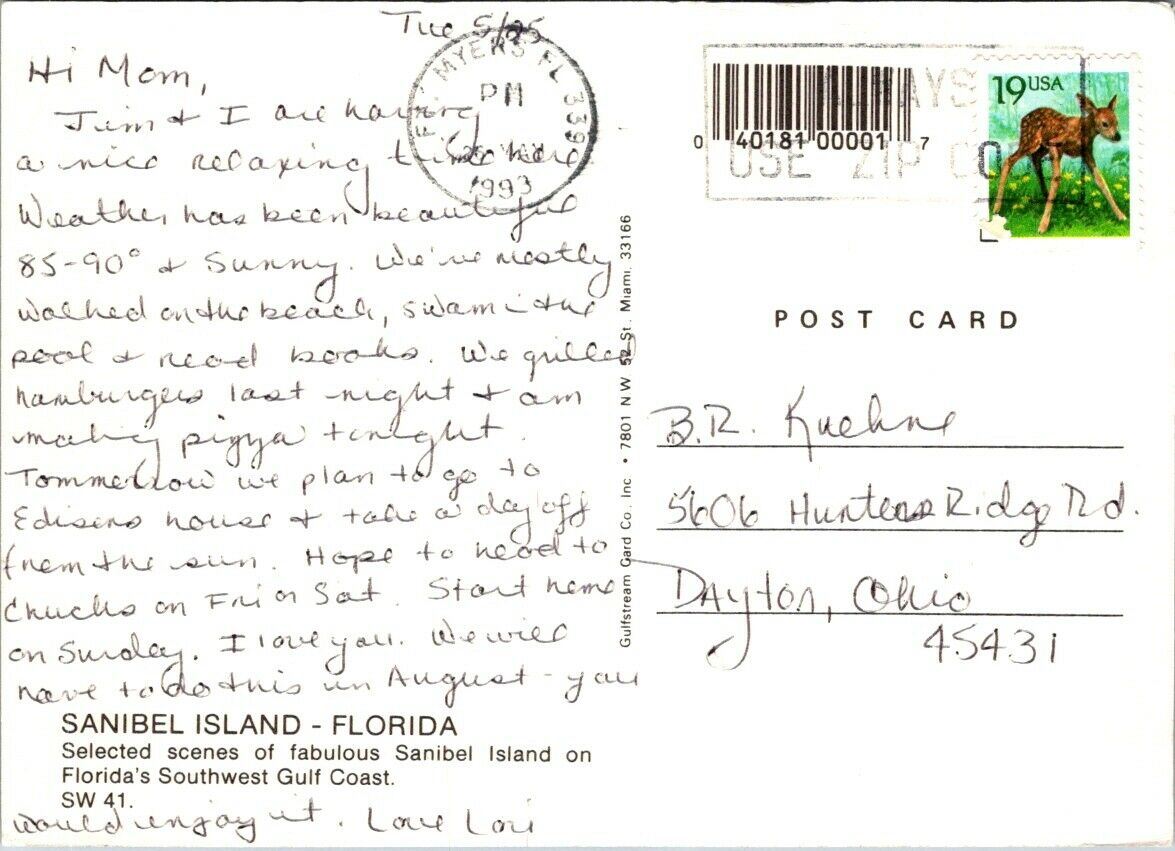 Tue 5/25
Hi Mom,
Jim & I are having
a nice relaxing time here
Weather has been beautiful
85-90° & Sunny. We've mostly
walked on the beach, swam i the
pool & read books. We grilled
hamburgers last night & am
making pizza tonight.
Tommorrow we plan to go to
Edisons house & take a day off
from the sun. Hope to head to
Chucks on Fri or Sat. Start home
on Sunday. I love you. We will
have to do this in August - you
SANIBEL ISLAND - FLORIDA
Selected scenes of fabulous Sanibel Island on
Florida's Southwest Gulf Coast.
SW 41.
would enjoy it. Love Lori
FT. MYERS FL 339
PM
1993
Gulfstream Card Co., Inc. • 7801 N W 52 St. Miami, 33166
0 40181 00001 7
ALWAYS
USE ZIP CO
19 USA
POST CARD
B.R. Kuehne
5606 Hunters Ridge Rd.
Dayton, Ohio
45431